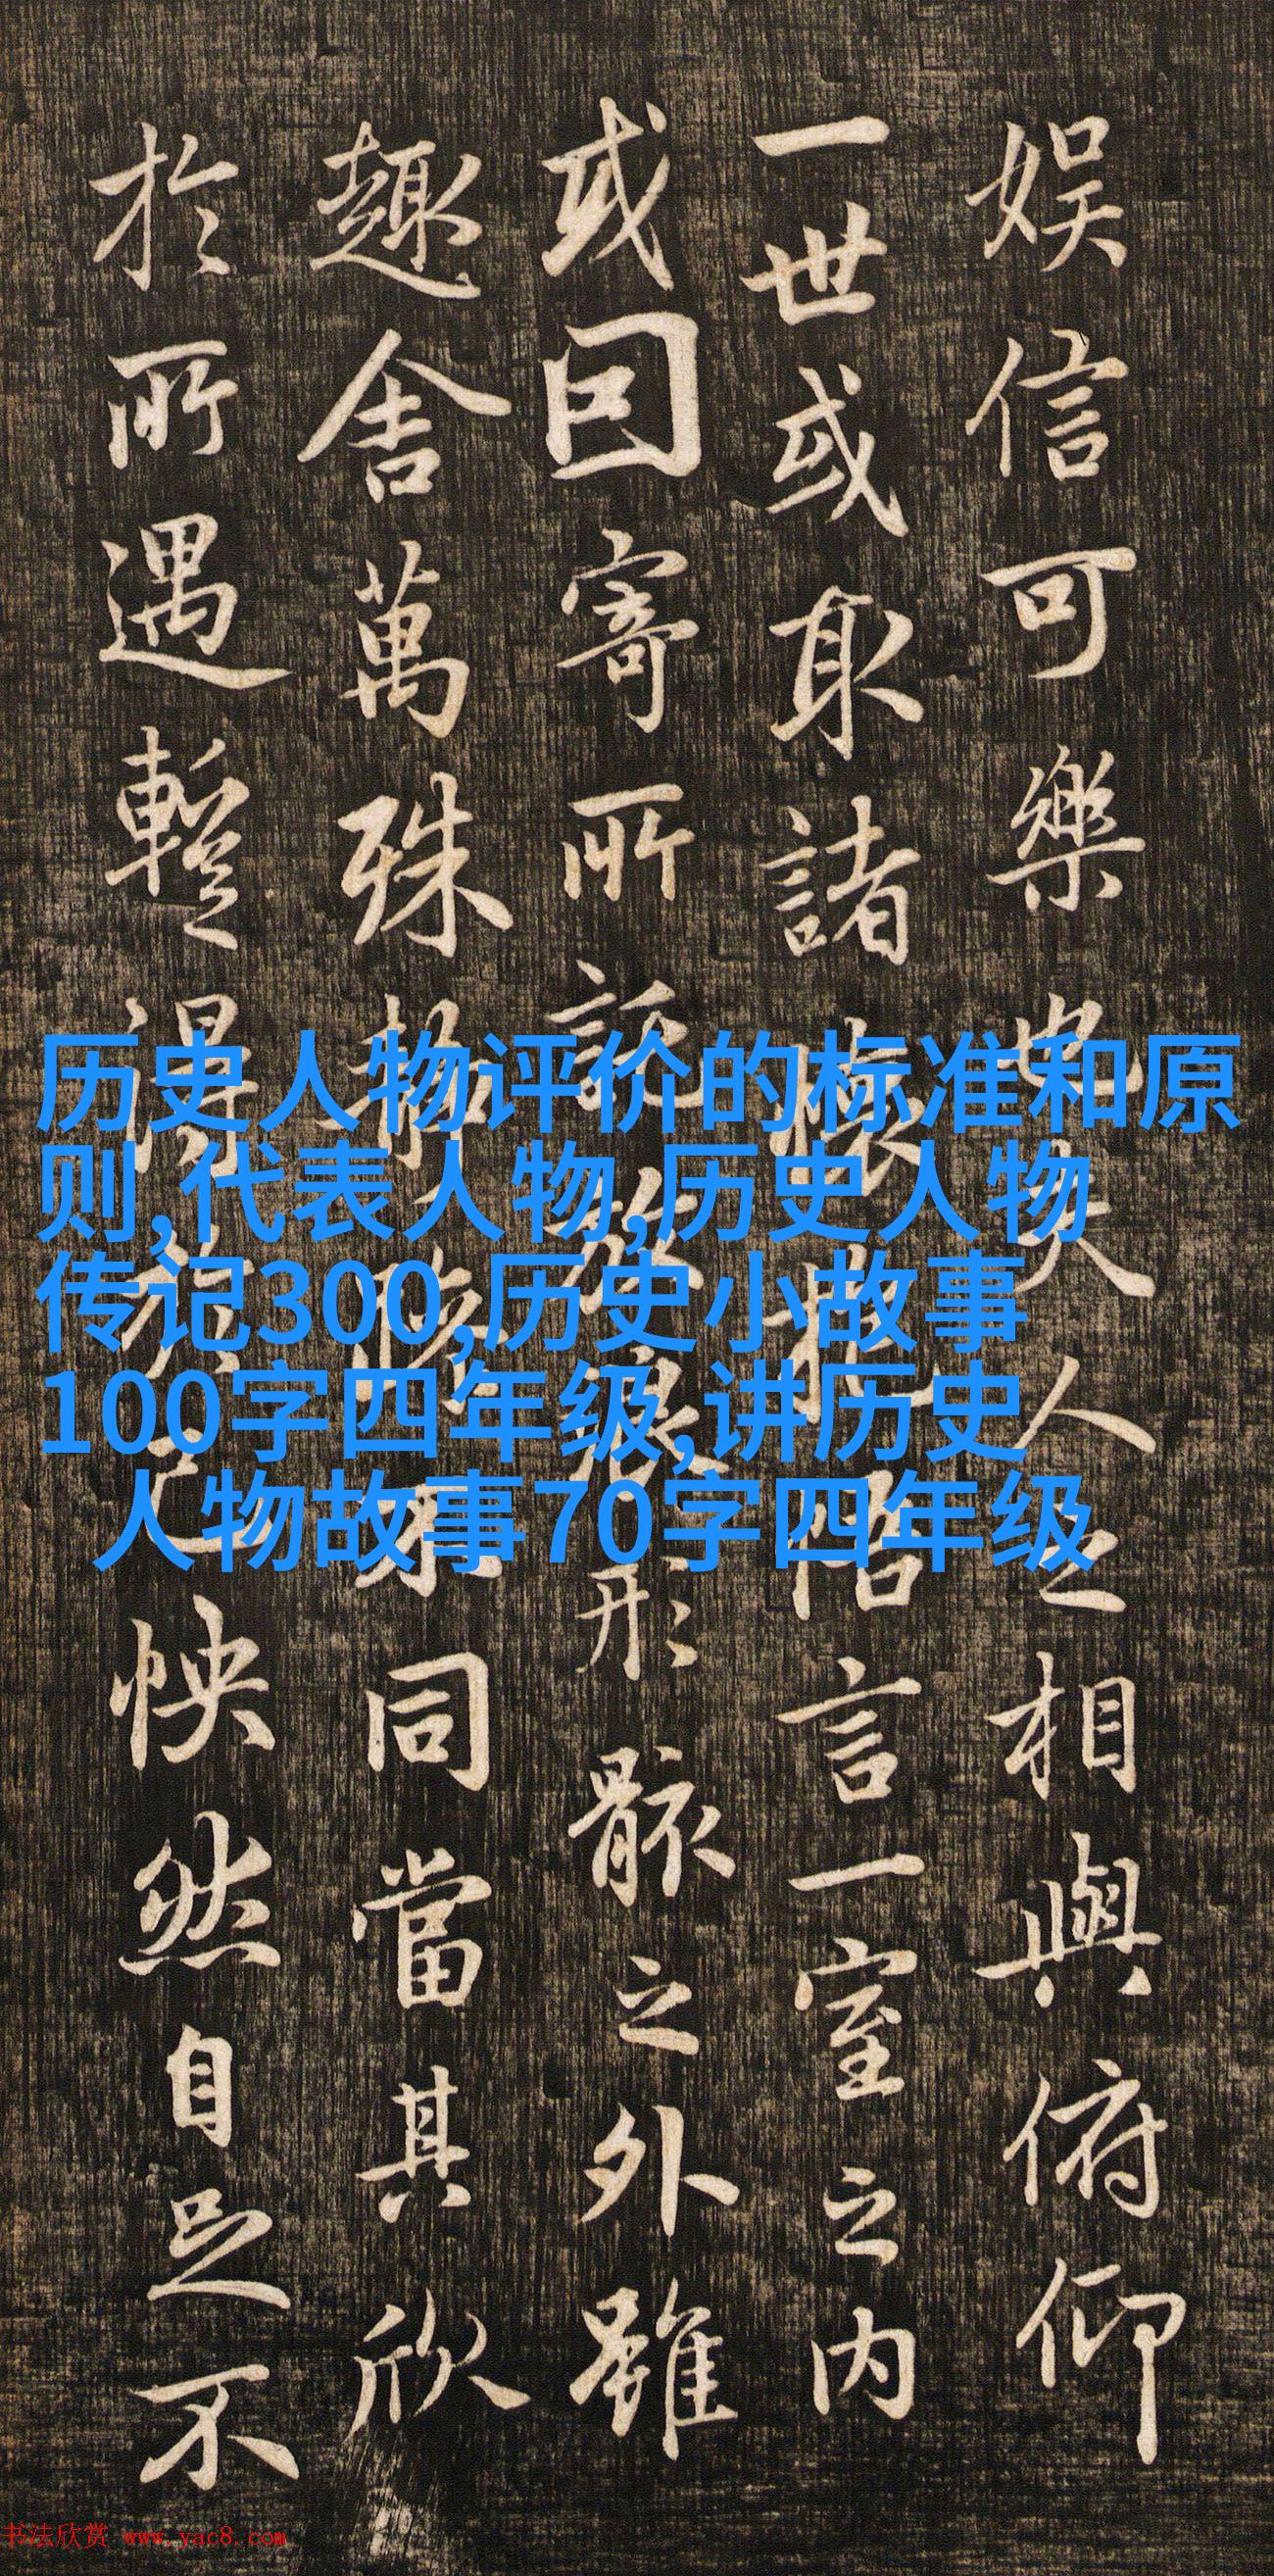 娱信可樂也夫人之相與俯仰
一世或取諸懷抱悟言一室之内
或因寄所託放浪形骸之外雖
趣舍萬殊静躁不同當其欣
於所遇蹔得於己怏然自足不
历史人物评价的标准和原
则,代表人物,历史人物
传记300,历史小故事
100字四年级,讲历史
人物故事70字四年级
书法欣赏 www.yac8.com